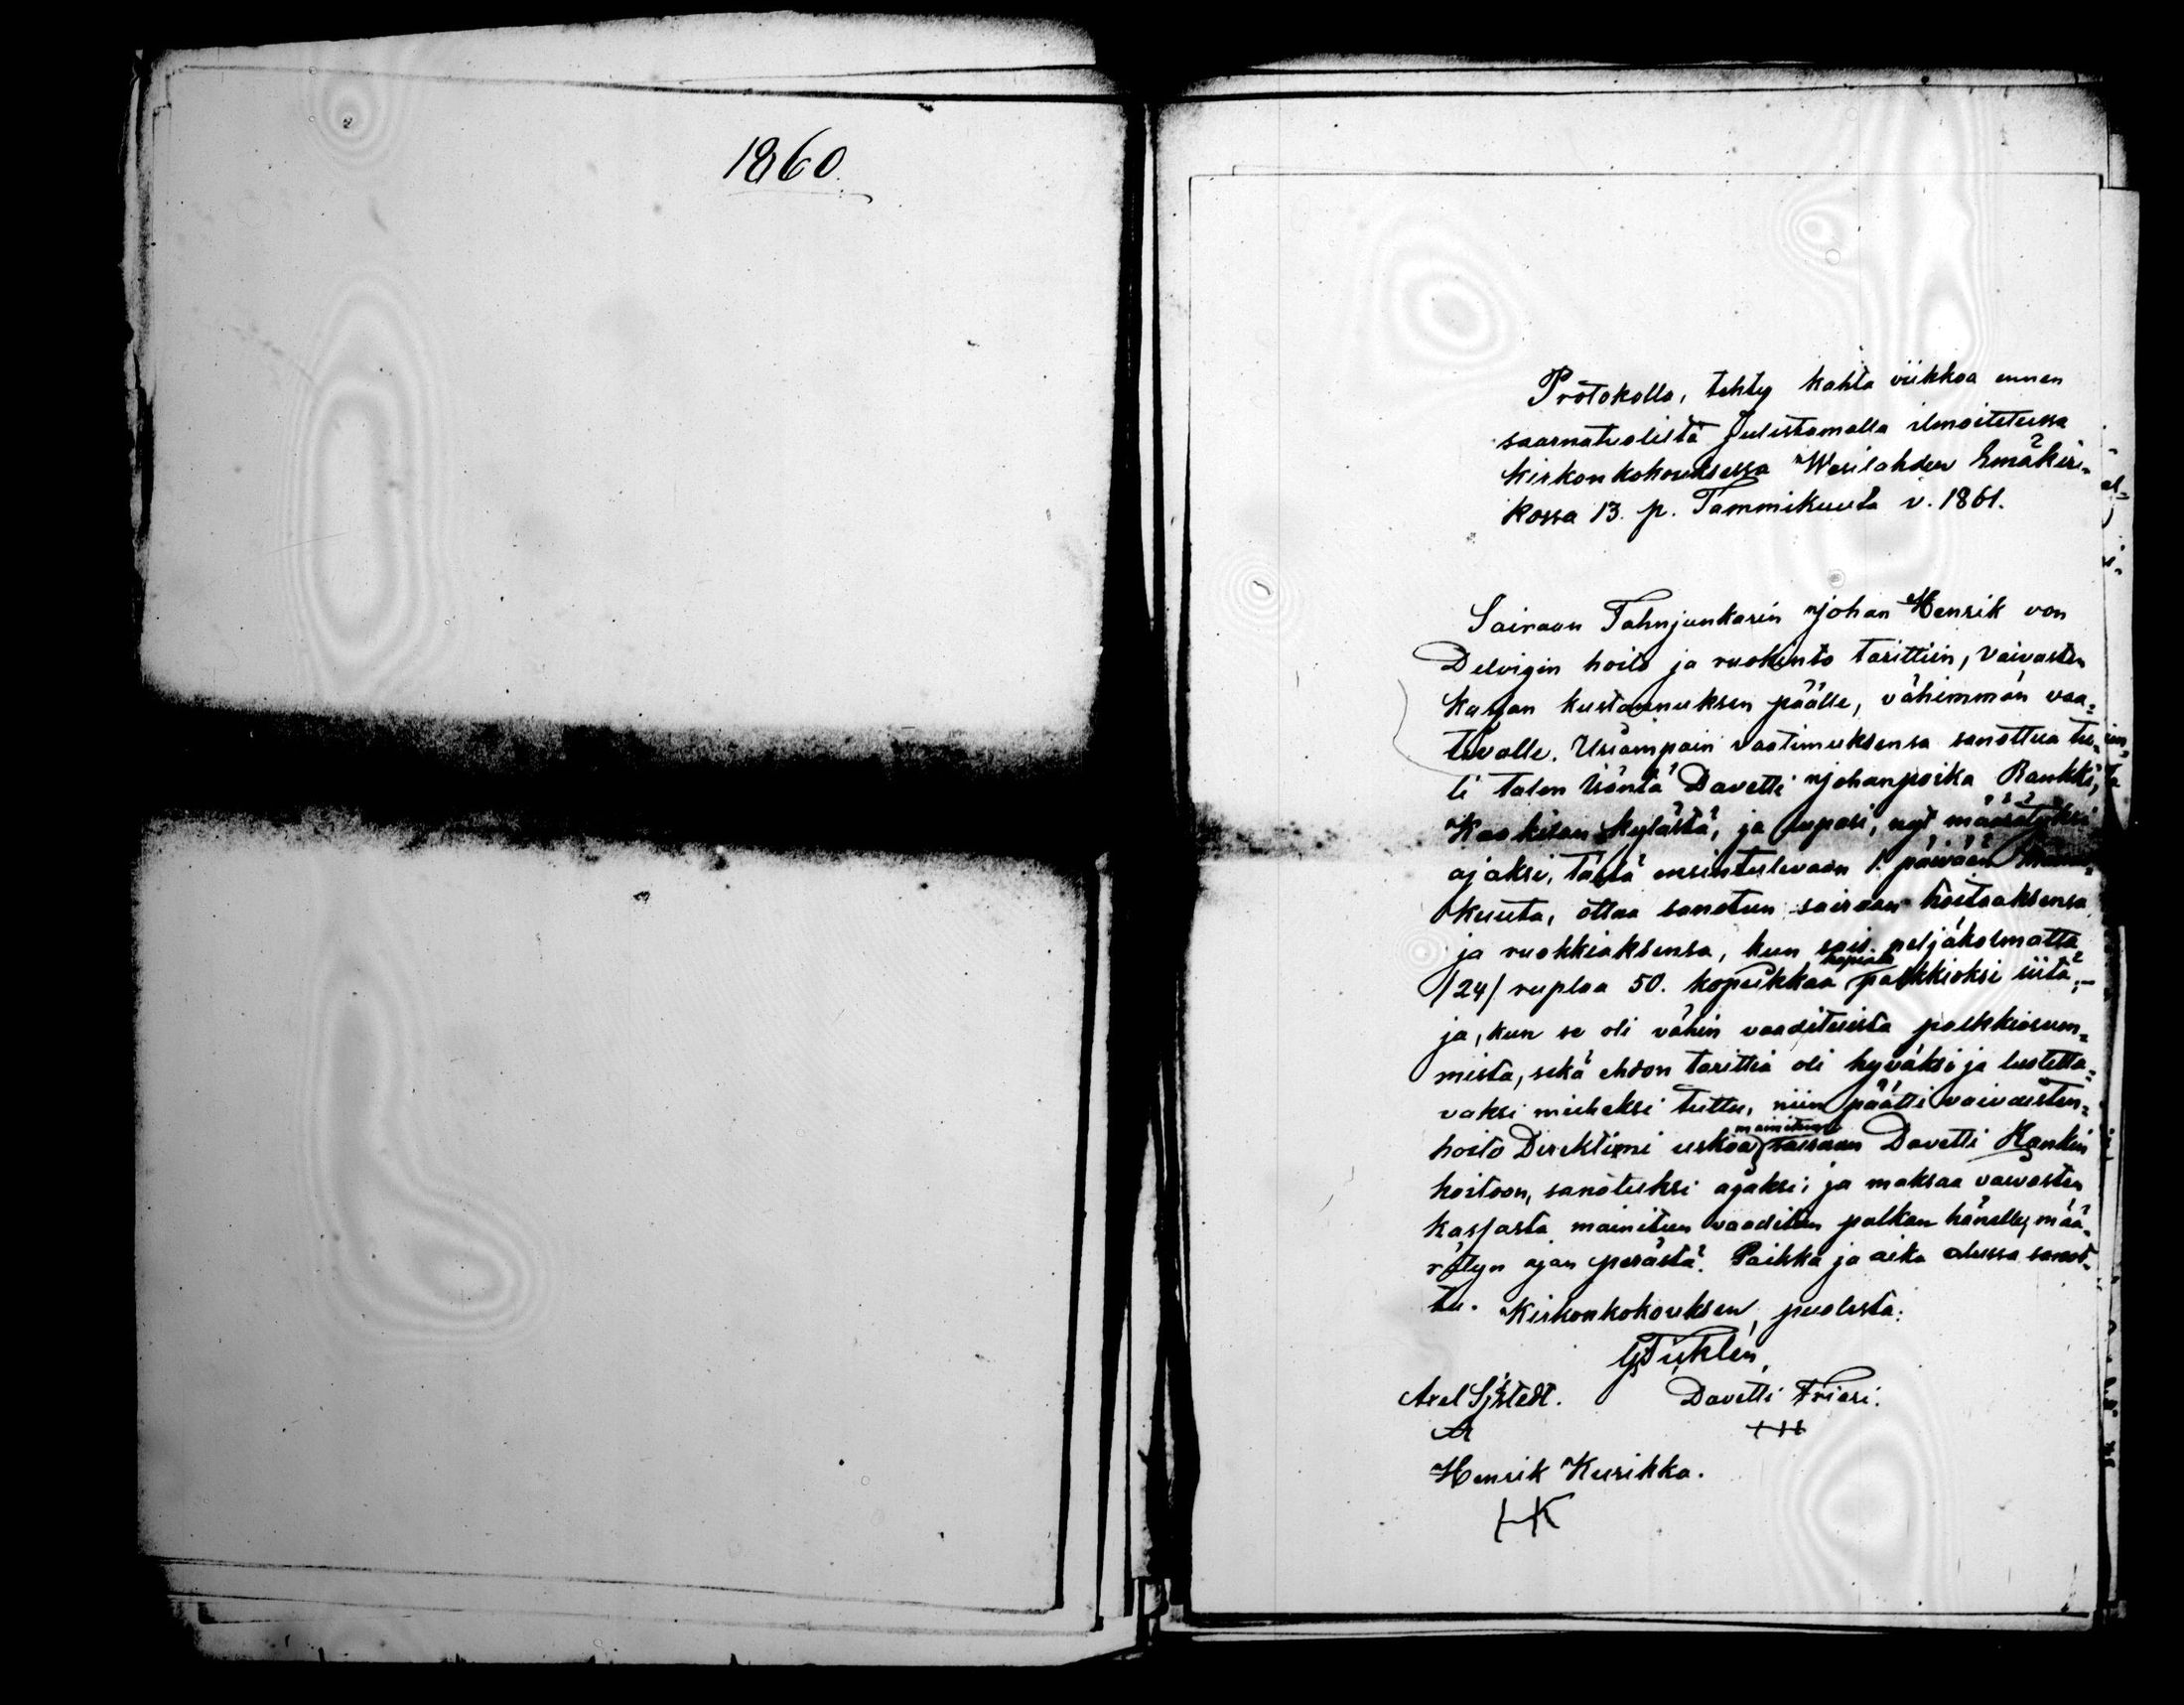 1860.
Protokolla, tehty kahta viikkoa ennen
saarnatuolilta Julistamalla ilmoitetussa
kirkonkokouksessa Wesilahden Emäkir-
kossa 13. p. Tammikuuta v. 1861.
Sairaan Fahnjunkarin Johan Henrik von
Delvigin hoito ja ruokinto tarittiin, vaivasten
kassan kustannuksen päälle, vähimmän vaa-
tivalle. Usiampain vaatimuksensa sanottua tu-
li talon Isäntä Davetti Johanpoika Rankki,
Kaakilan kylästä, ja lupasi, nyt määrätyksi
ajaksi, tästä ensintulevaan 1. päivään
kuuta, ottaa sanotun sairaan hoitaaksensa
ja ruokkiaksensa, kun sais neljäkolmatta
/24/ ruplaa 50. kopeikkaa hopiata palkkioksi siitä;-
ja, kun se oli vähin vaadituista palkkiosum-
mista, sekä ehdon tarittia oli hyväksi ja luotetta-
vaksi mieheksi tuttu, niin päätti vaivaisten-
hoito Direktioni uskoa mainitun sairaan Davetti Rankin
hoitoon, sanotuksi ajaksi; ja maksaa vaivasten
kassasta mainitun vaaditun palkan hänelle, mää-
rätyn ajan perästä. Paikka ja aika alussa sanot-
tu. Kirkonkokouksen puolesta:
Davetti Friari.
Henrik Kurikka.
HK